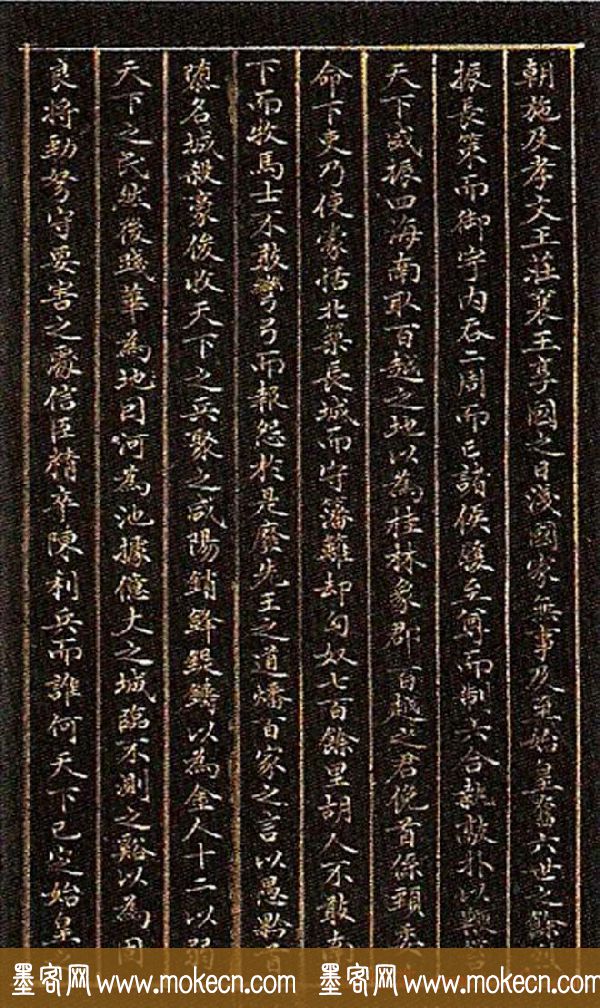 朝施及孝文王莊襄王享國之日淺國家無事及至始皇奮六世之餘烈
振長策而御宇內吞二周而亡諸侯履至尊而制六合執敲朴以鞭笞
天下威振四海南取百越之地以為桂林象郡百越之君俛首係頸委
命下吏乃使蒙恬北築長城而守藩籬却匈奴七百餘里胡人不敢南
下而牧馬士不敢彎弓而報怨於是廢先王之道燔百家之言以愚黔首
隳名城殺豪俊收天下之兵聚之咸陽銷鋒鍉鑄以為金人十二以弱
天下之民然後踐華為城因河為池據億丈之城臨不測之谿以為固
良將勁弩守要害之處信臣精卒陳利兵而誰何天下已定始皇之
墨客网 www.mokecn.com 墨客网 www.mokecn.com